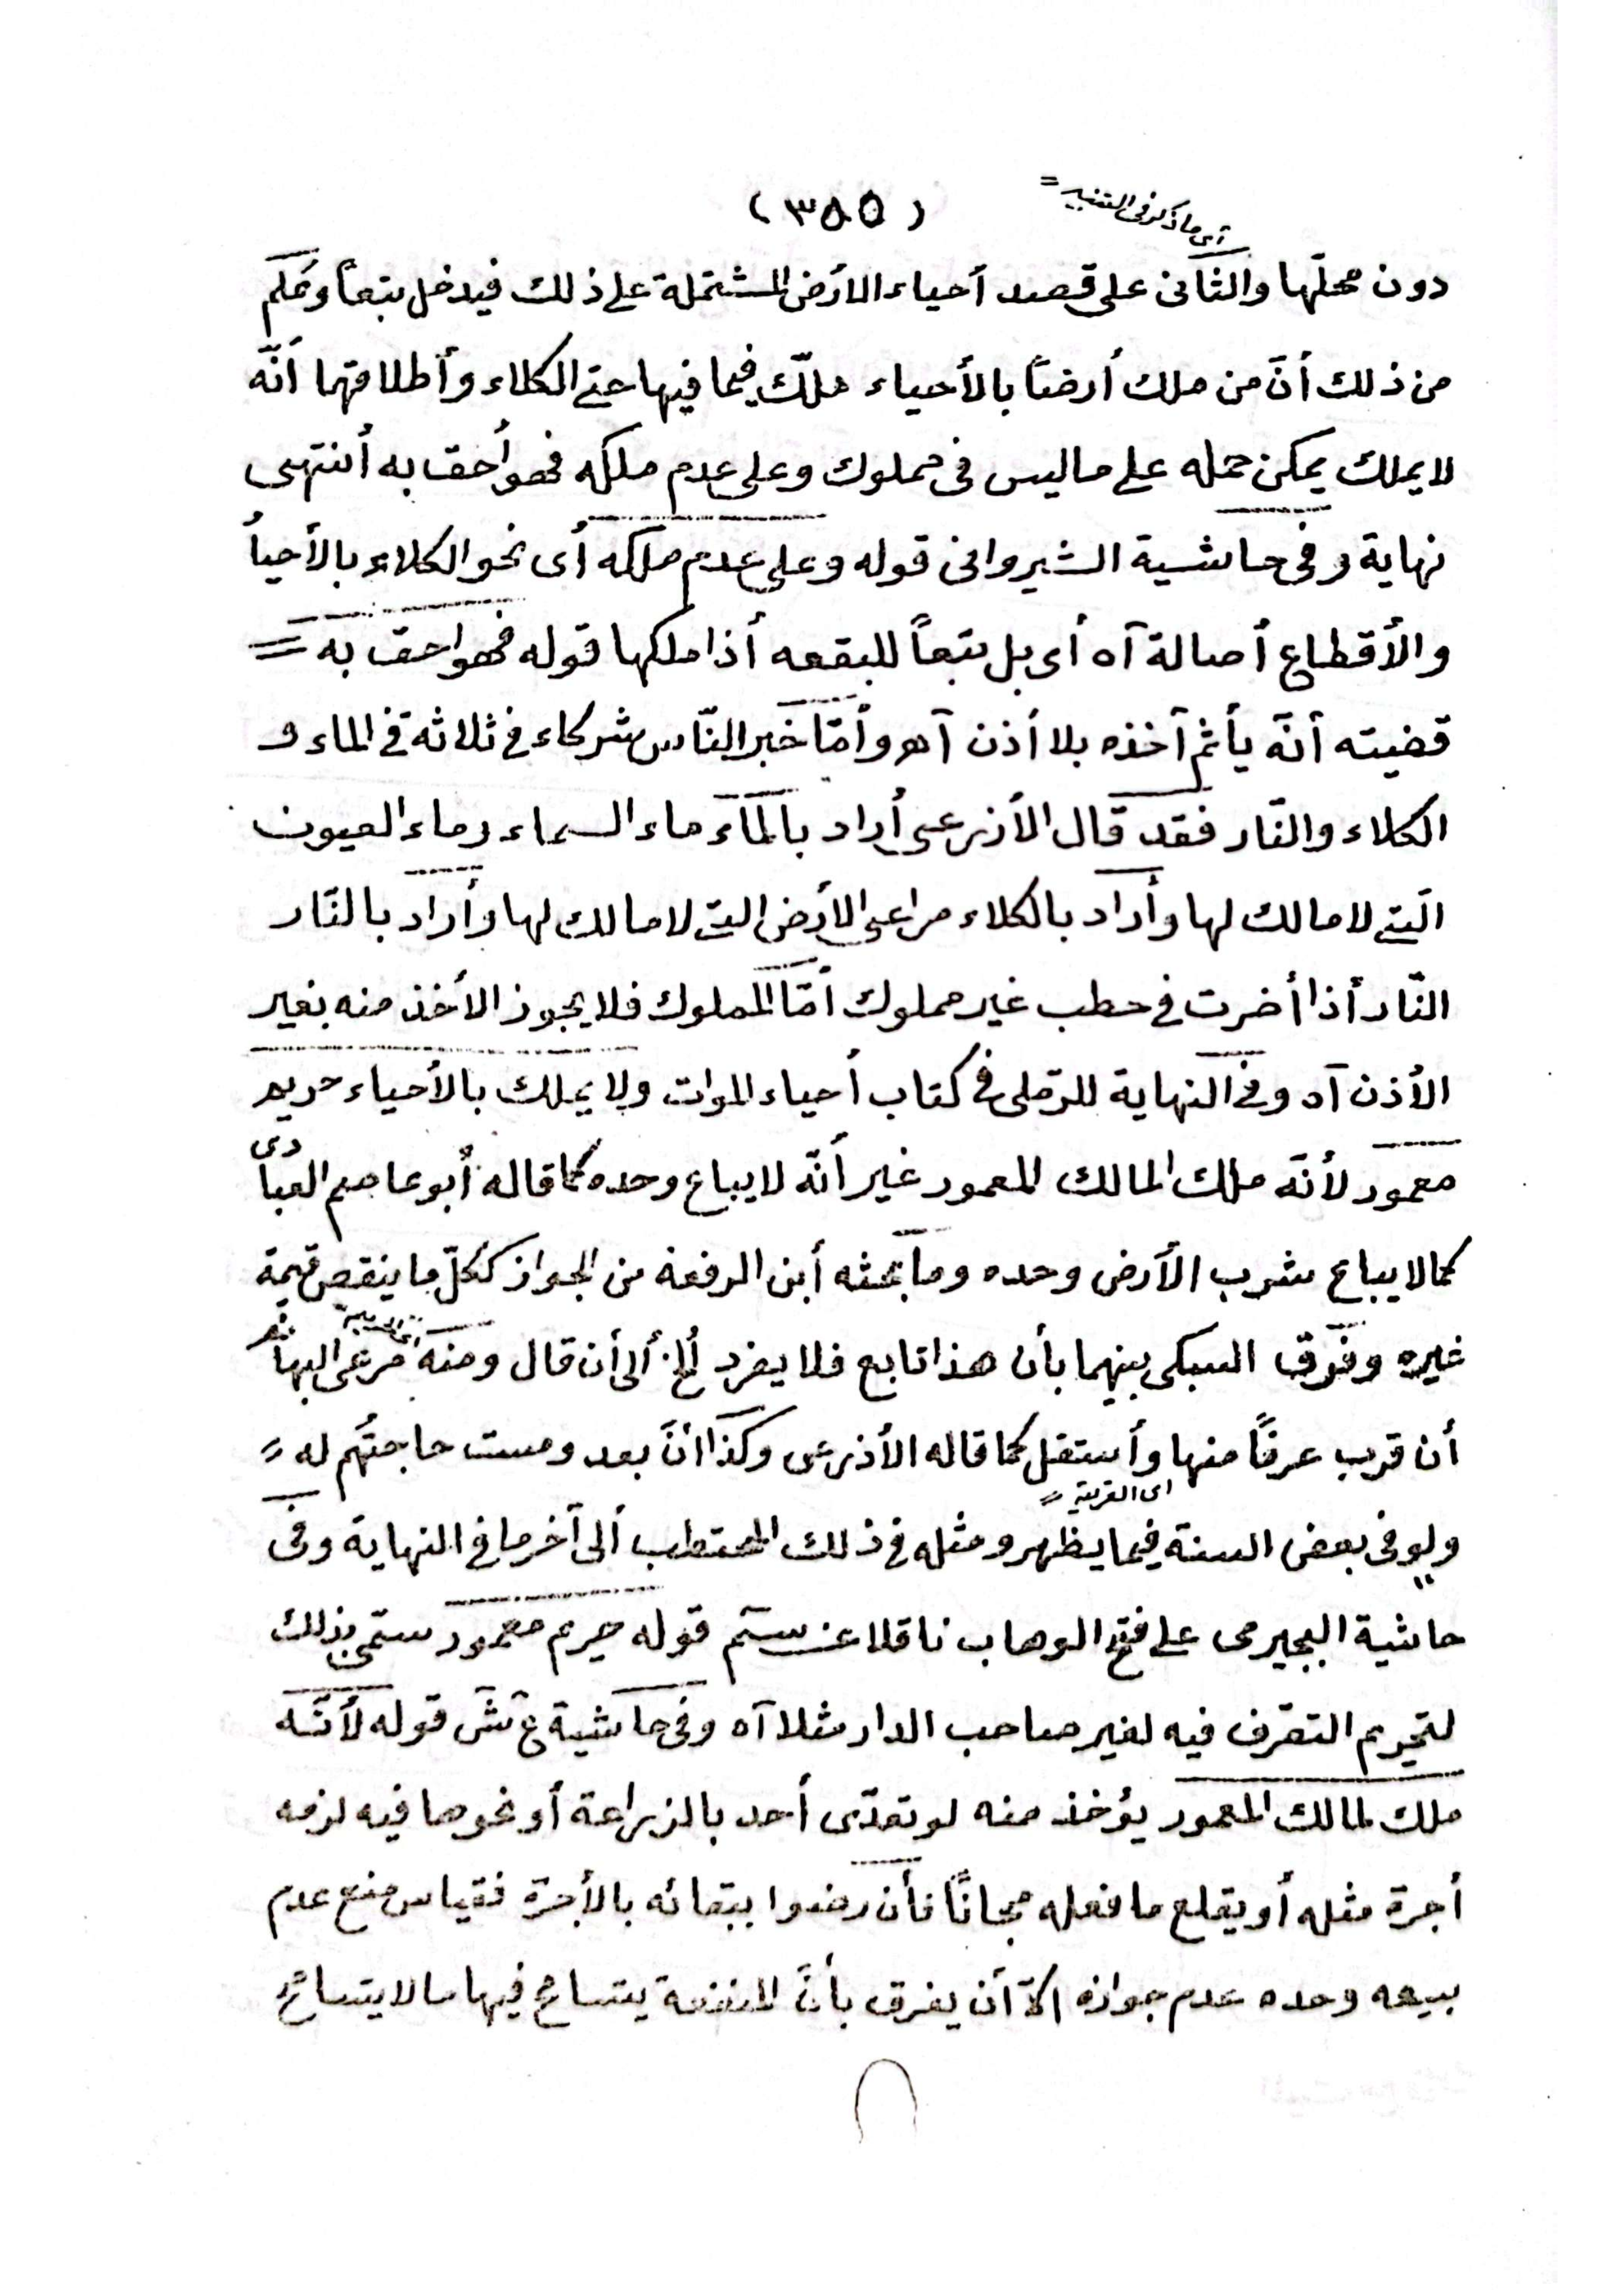 (٣٨٥)
أى ما ذكر فى التنبيه =
دون محلّها والثّانى على قصد أحياء الأرض المشتملة على ذلك فيدخل تبعاً وعُلم
من ذلك أنّ من ملك أرضاً بالأحياء ملك فيما فيها حتى الكلاء وأطلاقهما أنّه
لا يملك يمكن حمله على ما ليس فى مملوك وعلى عدم ملكه فهو أحق به أنتهى
نهاية وفى حاشية الشيروانى قوله وعلى عدم ملكه أى نحو الكلاء بالأحياأ
والأقطاع أصالة آه أى بل تبعاً للبقعه أذا ملكها قوله فهو احق به =
قضيته أنّه يأثم آخذه بلا أذن آه وأمّا خبر النّاس شركاء فى ثلاثة فى الماء و
الكلاء والنّار فقد قال الأذرعى أراد بالمآء ماء السماء وماء العيون
الّتى لا مالك لها وأراد بالكلاء مراعى الأرض التى لا مالك لها وأراد بالنّار
النّار أذا أضرت فى حطب غير مملوك أمّا المملوك فلا يجوز الأخذ منه بغير
الأذن آه وفى النهاية للرّملى فى كتاب أحياء الموات ولا يملك بالأحياء حريم
معمور لأنّه ملك المالك المعمور غير أنّه لا يباع وحده كما قاله أبو عاصم العبّادى
كما لا يباع شرب الأرض وحده وما بحثه أبن الرفعة من الجواز ككلّ ما ينقص قيمة
غيره وفرّق السبكى بينهما بأن هذا تابع فلا يفرد ألخ ألى أن قال ومنه مرعى البهائم
أن قرب عرفاً منها وأستقل كما قاله الأذرعى وكذا أنّ بعد ومست حاجتهُم له =
اى القرية =
ولو فى بعض السنة فيما يظهر ومثله فى ذلك المحتطب ألى آخر ما فى النهاية وفى
حاشية البجيرمى على فتح الوهاب ناقلا عن سم قوله حريم معمور سمّى بذلك
لتحريم التصّرف فيه لغير صاحب الدار مثلا آه وفى حاشية ع ش قوله لأنّه
ملك لمالك المعمور يؤخذ منه لو تعدّى أحد بالزراعة أو نحوها فيه لزمه
أجرة مثله أو يقلع ما فعله مجاناً فأن رضوا ببقائه بالأجرة فقياس منع عدم
بيعه وحده عدم جوازه الاّ أن يفرق بأنّ المنفعة يتسامح فيها ما لا يتسامح